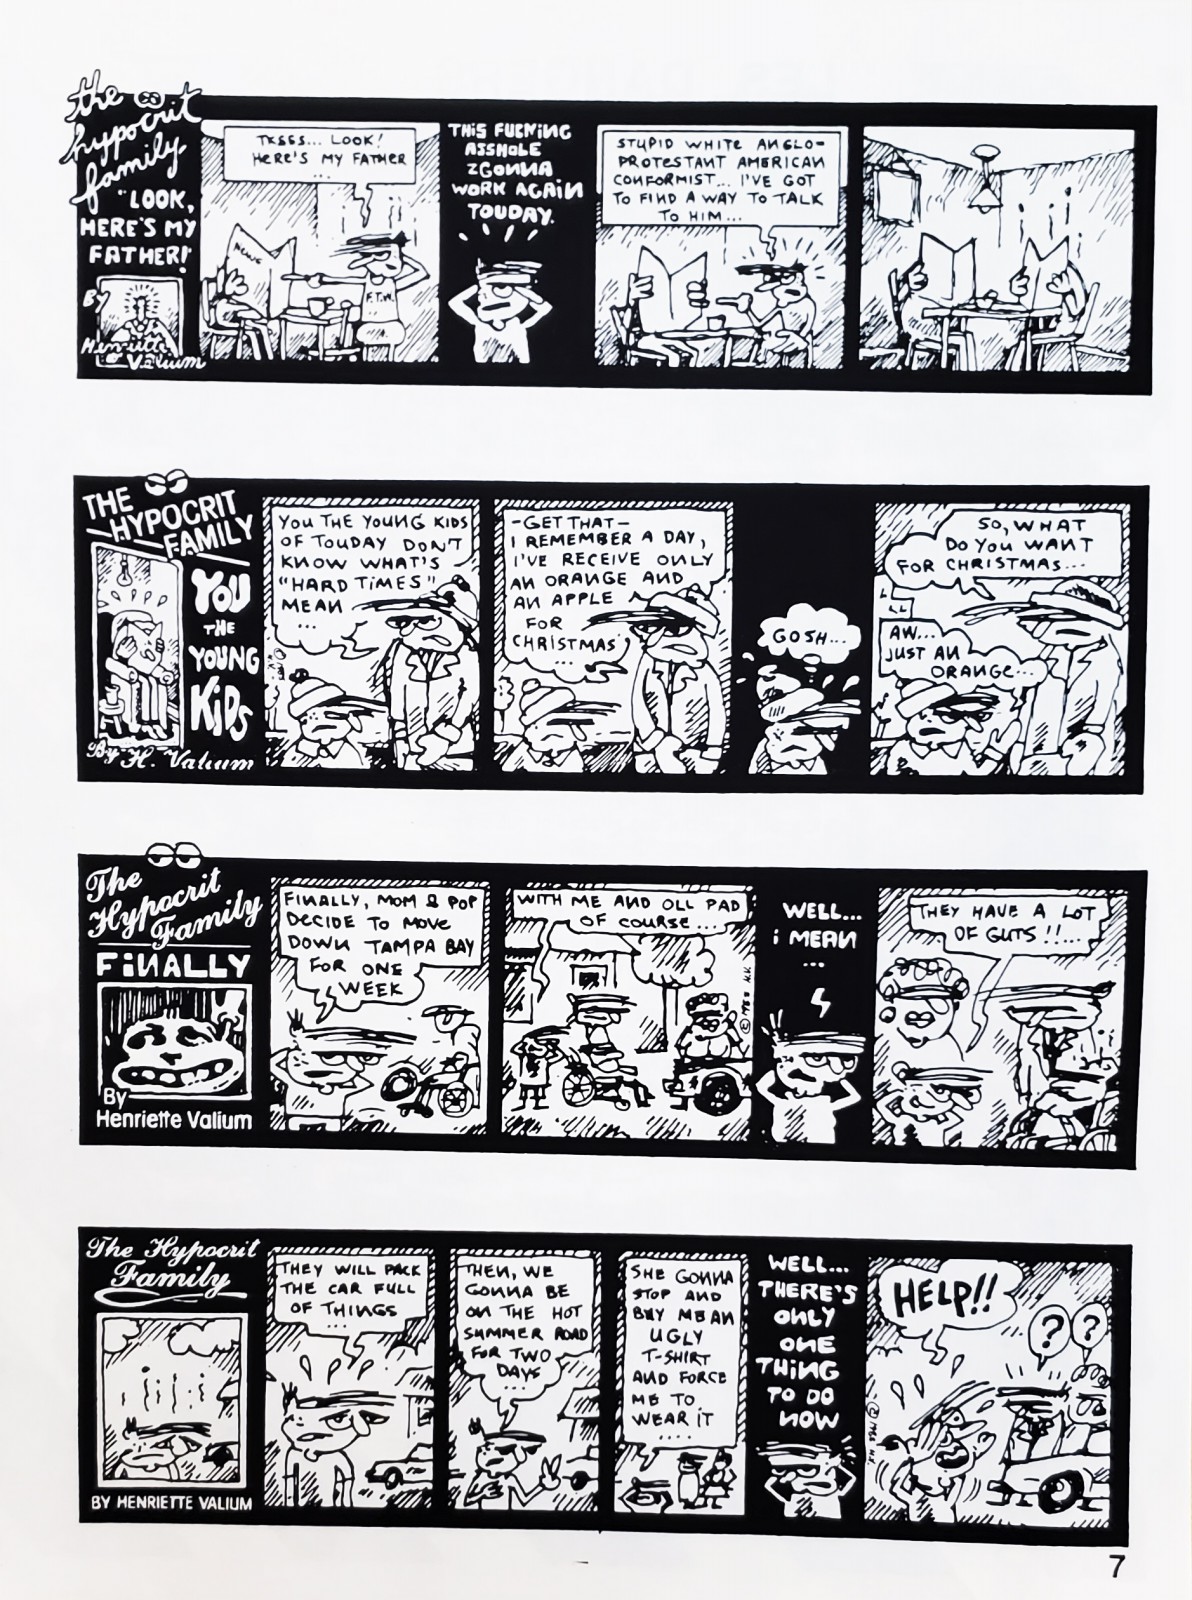 the
hypocrit
family
"LOOK,
HERE'S MY
FATHER!
By
Henriette
Valium
TKSSS... LOOK!
HERE'S MY FATHER
...
F.T.W.
THIS FUCKING
ASSHOLE
ZGONNA
WORK AGAIN
TOUDAY.
STUPID WHITE ANGLO-
PROTESTANT AMERICAN
CONFORMIST... I'VE GOT
TO FIND A WAY TO TALK
TO HIM...
THE
HYPOCRIT
FAMILY
YOU
THE
YOUNG
KIDS
By H. Valium
YOU THE YOUNG KIDS
OF TOUDAY DON'T
KNOW WHAT'S
"HARD TIMES"
MEAN
...
-GET THAT-
I REMEMBER A DAY,
I'VE RECEIVE ONLY
AN ORANGE AND
AN APPLE
FOR
CHRISTMAS
...
GOSH...
SO, WHAT
DO YOU WANT
FOR CHRISTMAS...
AW...
JUST AN
ORANGE...
The
Hypocrit
Family
FINALLY
By
Henriette Valium
FINALLY, MOM & POP
DECIDE TO MOVE
DOWN TAMPA BAY
FOR ONE
WEEK
WITH ME AND OLL PAD
OF COURSE...
WELL...
i MEAN
...
THEY HAVE A LOT
OF GUTS!!...
The Hypocrit
Family
BY HENRIETTE VALIUM
THEY WILL PACK
THE CAR FULL
OF THINGS
...
THEN, WE
GONNA BE
ON THE HOT
SUMMER ROAD
FOR TWO
DAYS
...
SHE GONNA
STOP AND
BUY ME AN
UGLY
T-SHIRT
AND FORCE
ME TO
WEAR IT
....
WELL...
THERE'S
ONLY
ONE
THING
TO DO
NOW
HELP!!
? ?
7